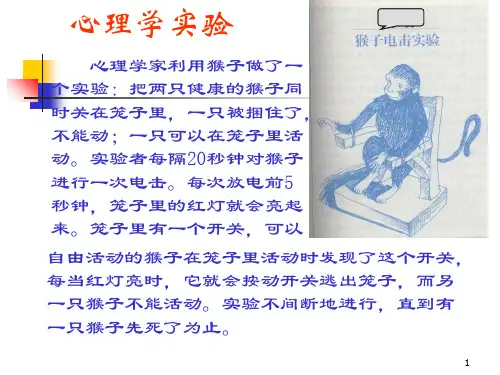 心理学实验
猴子电击实验
心理学家利用猴子做了一
个实验：把两只健康的猴子同
时关在笼子里，一只被捆住了，
不能动；一只可以在笼子里活
动。实验者每隔20秒钟对猴子
进行一次电击。每次放电前5
秒钟，笼子里的红灯就会亮起
来。笼子里有一个开关，可以
自由活动的猴子在笼子里活动时发现了这个开关，
每当红灯亮时，它就会按动开关逃出笼子，而另
一只猴子不能活动。实验不间断地进行，直到有
一只猴子先死了为止。
1